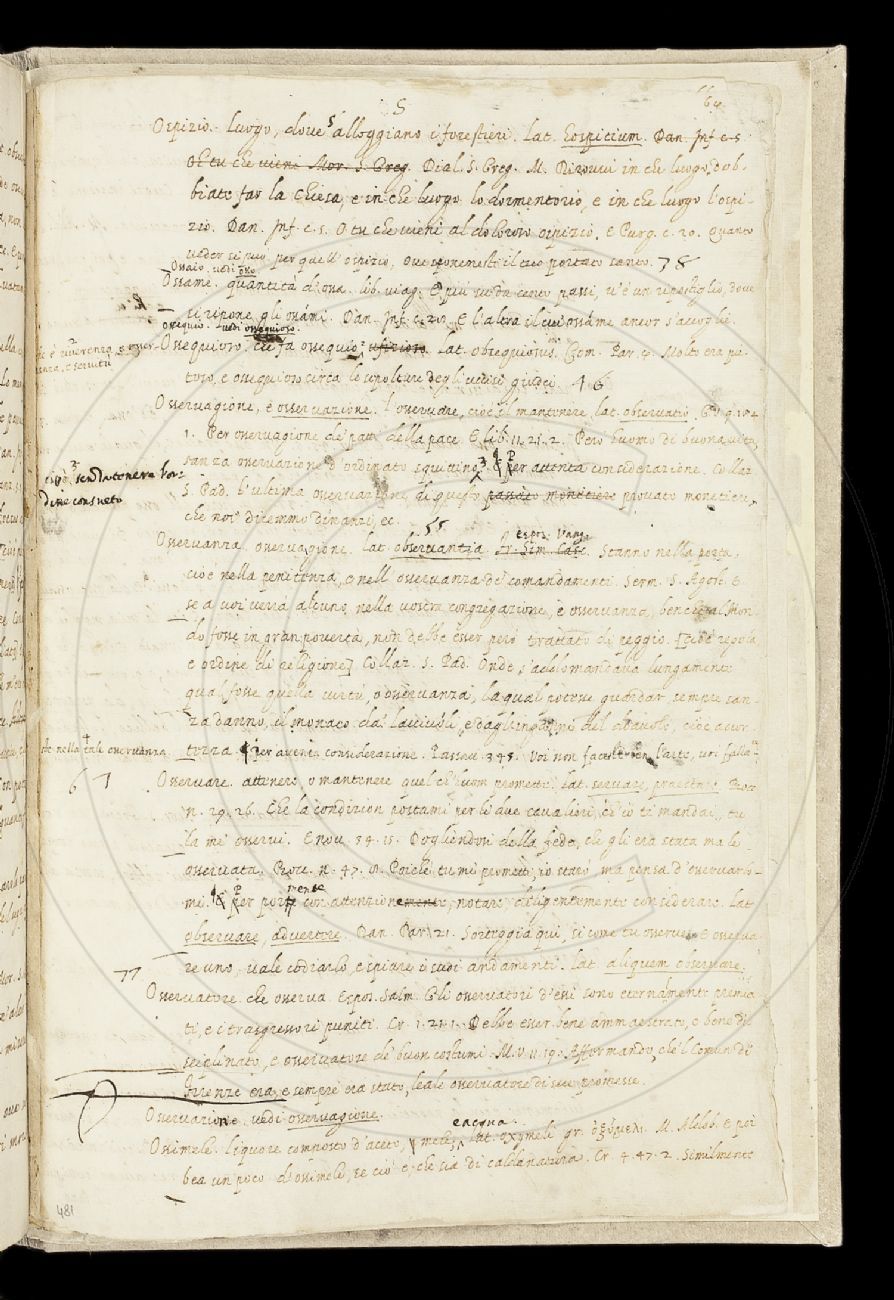 S
Ospizio. Luogo, dove s'alloggiano i forestieri. Lat. hospitium. Dan. Inf. c. 5.
O tu che viene Mor. S. Greg. Dial. S. Greg. M. in che luogo dob-
biate far la Chiesa, e in che luogo lo dormentorio, e in che luogo l'ospi-
zio. Dan. Inf. c. 5. O tu che vieni al doloroso ospizio. E Purg. c. 20. Quanto
veder si può per quell'ospizio, ove sponesti il tuo portato santo. 78
Ossaio. vedi osso
Ossame. quantità d'ossa. lib. viag. E più su da cento passi, v'è un ripostiglio, dove
si ripone gli ossami. Dan. Inf. c. 28. E l'altra il cui ossame ancor s'accoglie.
ossequio. vedi ossequioso.
Ossequioso, che fa ossequio, Lat. obsequiosus. Com. Par. 4. Molto era pie-
toso, e ossequioso circa le sepolture degli uccisi giudei. 46
Osservagione, e osservazione. l'osservare, cioè il mantenere, lat. observatio.
1. Per osservagione de' patti della pace. E lib. 11. 21. 2. Però huomo di buona vita,
sanza osservazione d'ordinato squittino. ¶ Per attenta considerazione. Collaz.
S. Pad. L'ultima osservazione di questo passato monetiere provato monetiere,
che noi dicemmo dinanzi, ec.
55
Osservanza. osservagione. lat. observantia. Fr. Sim. Casc. Espos. Vang. Stanno nella porta,
cioè nella penitenza, o nell'osservanza de' comandamenti. Serm. S. Agost. E
se a voi verrà alcuno nella vostra congregazione, e osservanza, benchè al Mon-
do fosse in gran povertà, non debbe esser però trattato di peggio. [cioè regola,
e ordine di religione] Collaz. S. Pad. Onde s'addomandava lungamente
qual fosse quella virtù, o osservanza, la qual potesse guardar sempre san-
za danno, il monaco da' lacciuoli, e dagl'inganni del diavolo, cioè accor-
tezza. ¶ Per attenta considerazione. Passav. 345. Voi non l'arte, voi
67
Osservare. attenere, o mantenere quel ch'huom promette. Lat. servare, praestare. Bocc.
n. 29. 26. Che la condizion postami per li due cavalieri, ch'io ti mandai, tu
la mi osservi. E nov. 34. 15. Dogliendosi della fede, che gli era stata male
osservata. Bocc. n. 47. 8. Poichè tu mi prometti, io starò, ma pensa d'osservarlo-
mi. ¶ Per por mente con attenzione, notare, diligentemente considerare. Lat.
observare, advertire. Dan. Par. 21. Sorteggia qui, sì come tu osserve. E osserva-
re uno, vale codiarlo, e spiare i suoi andamenti. Lat. aliquem observare.
77
Osservatore. che osserva. Espos. Salm. Gli osservatori d'essi sono eternamente premia-
ti, e i trasgressori puniti. Cr. 1. 21. 1. Debbe esser bene ammaestrato, e bene di-
sciplinato, e osservatore de' buon costumi. M.V. 11. 19. Affermando, che'l Comun di
Firenze era, e sempre era stato, leale osservatore di sue promesse.
Osservazione. vedi osservagione.
Ossimele. Liquore composto d'aceto, mele, e acqua. lat. oxymeli gr. ὀξύμελι. M. Aldob. E poi
bea un poco d'ossimele, se ciò è, che sia di calda natura. Cr. 4. 47. 2. Similmente
481